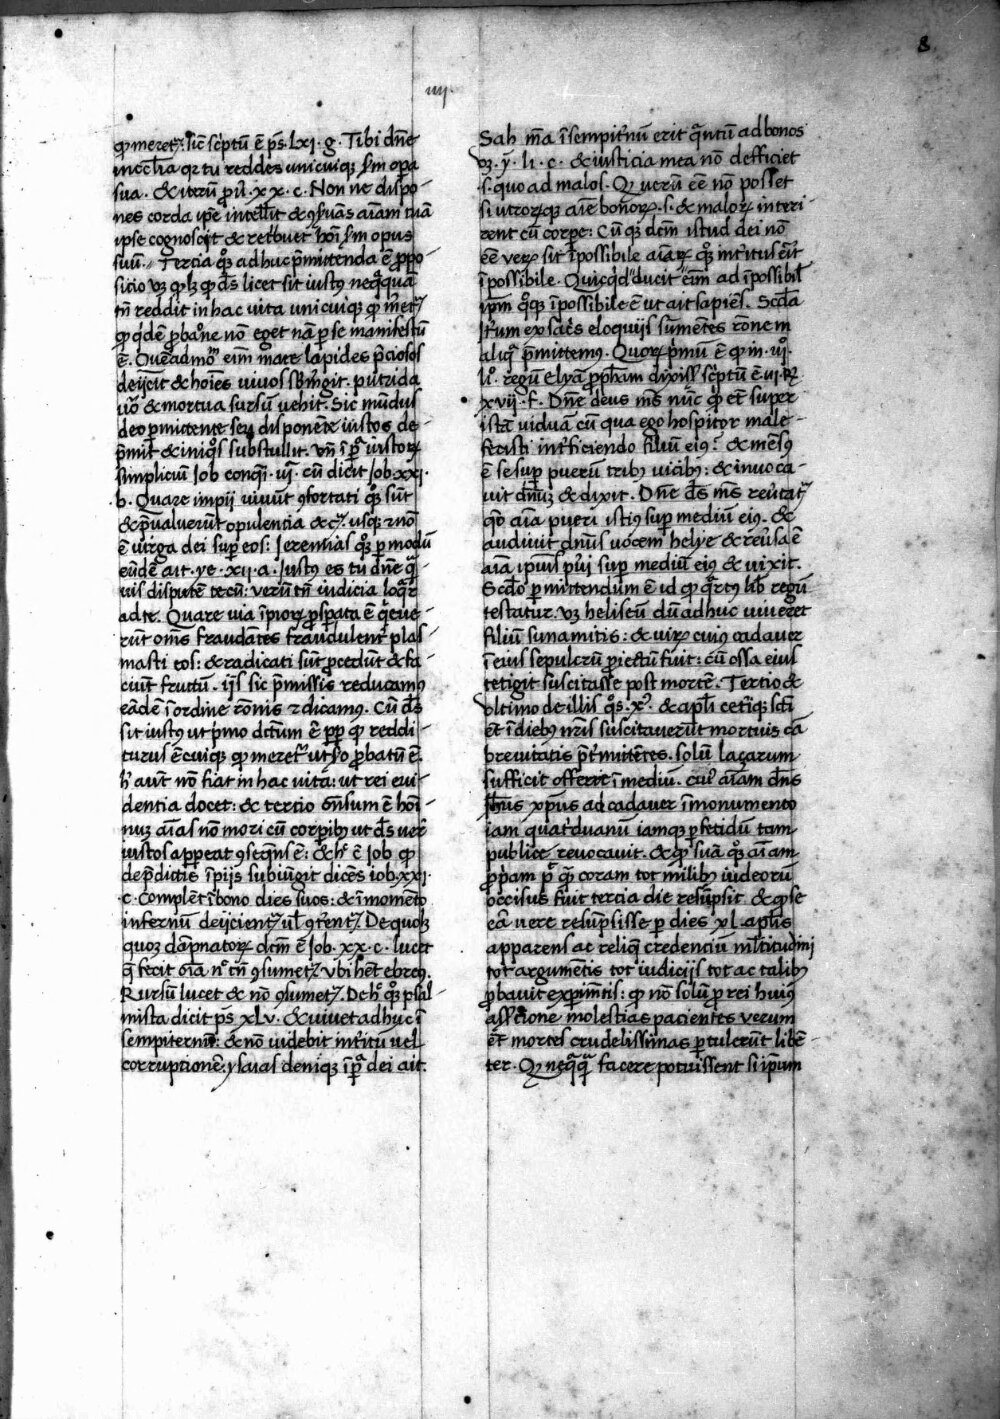 8
iiij.
ꝙ meret᷑. sic̄ sc̄ptū ē ps̄. lxi. g. Tibi dn̄e
mīcd̄ia qr tu reddes unicuiqꝫ scd̄m opa
sua. & iterū ꝓu̇. xx. c. Non ne dispo-
nes corda ip̄e intell̄it & ꝯs̄uās aīam tuā
ipse cognoscit & ret̄buet hoī scd̄m opus
suū. Tercia qͦꝫ adhuc p̄mittenda ē ꝓpo-
sicio vꝫ ꝙ ꝙ ds̄ licet sit iustꝰ neq̄quā
tn̄ reddit in hac uita unicuiqꝫ ꝙ m̄et᷑
ꝙ qͥdē ꝓbac̄one nō eget nā ꝑ se manifestū
ē. Quēadmoᷣ eim̄ mare lapides p̄ciosos
deijcit & hoīes uiuos sb̄m̄git. putrida
uͦo & mortua sursū uehit. Sic mūdus
deo ꝑmittente seu disponēte iustos de-
p̄mit & iniqͦs substullit. Vn̄ ī ꝑa iustoꝝ
simpliciū Iob conq̄ri. ur̄. cū dicit Iob. xxi.
b. Quare impij uiuūt ꝯfortati qͦꝫ sūt
& p̄ualuerūt opulencia &c᷑. usqꝫ ꝛ nō
ē uirga dei suꝑ eos: Ieremias qͦꝫ ꝑ modū
eūdē ait. ye. xij. a. Iustꝰ es tu dn̄e q̄-
uis disputē tecū: uerū tn̄ iudicia loq̄r
ad te. Quare uia īpioꝝ ꝓsꝑata ē q̄ eue-
rūt om̄s fraudātes fraudulent᷑ plas-
masti eos: & radicati sūt ꝓcedūt & fa-
ciūt fructū. ijs sic p̄missis reducamꝰ
eādē ī ordine rōnis ꝛ dicamꝰ. Cū ds̄
sit iustꝰ ut p̄mo dc̄tum ē ꝓp̄ ꝙ reddi-
turus ē cuiqꝫ ꝙ meret᷑ ut scd̄o ꝓbatū ē.
h̄ aut̄ nō fiat in hac uita: ut rei eui-
dentia docet: & tercio on̄sum ē hoī-
nuꝫ aīas nō mori cū corꝑibꝫ ut ds̄ uer̄
iustos appeat ꝯseq̄ns ē: & hͦ ē Iob ꝙ
de p̄dictis īpijs subiūgit dicēs iob. xxi.
c. Complēt ī bono dies suos: & ī momēto
infernū deijcient᷑ ul̄ ꝯt̄ent᷑. De quoꝫ
quoꝫ dāpnatoꝝ dc̄m ē Iob. xx. c. lucet
q̄ fecit oīa nͦ tn̄ ꝯsumet᷑. ubi hn̄t ebreꝰ.
Rursū lucet & nō ꝯsumet᷑. De hͦ qͦꝫ psal-
mista dicit ps̄ xlv. & uiuet adhuc ī
sempiternū: & nō uidebit int̄itū uel
corruptionē. ysaias deniqꝫ ī ꝑa dei ait.
Sal̄ m̄a ī sempit̄nū erit q̄ntū ad bonos
vꝫ. y̆. li. c. & iusticia mea nō deffiet
.s. quo ad malos. Ꝙ uerū eē nō posset
si utroꝝqꝫ aīe bonoꝝ .s. & maloꝝ interi-
rent cū corꝑe: Cū qꝫ dcm̄ istud dei nō
eē veꝝ sit īpossibile aīaꝝ qͦꝫ int̄itus eīt
īpossibile. Quicq̄d ducit eim̄ ad īpossibil̄
ipm̄ qͦqꝫ īpossibile ē ut ait sapiēs. Scd̄a
it̄um ex sac̄s eloquijs sūmētes rōnem
aliq̄ p̄mittemꝰ. Quoꝝ p̄mū ē ꝙ in. uͦi.
lͥ. regū Elyā ꝓph̄am dixiss̄ sc̄ptū ē. ui. R
xvij. f. Dn̄e deus ms̄ nūc ꝙ et̄ super
istā uiduā cū qua ego hospitor male-
fecisti int̄ficiendo filiū eiꝰ? & mēsꝰ
ē se suꝑ puerū tribꝰ uicibꝰ: & inuoca-
uit dn̄uꝫ & dixit. Dn̄e ds̄ ms̄ reu̇tat᷑
qͦ aīa pueri istiꝰ suꝑ mediū eiꝰ. &
audiuit dn̄us uocem helye & reu̇sa ē
aīa ipsius pu̇i suꝑ mediū eiꝰ & uixit.
Scd̄o p̄mittendum ē id ꝙ q̄rtꝰ lib̄ regū
testatur. vꝫ heliseū dū adhuc uiueret
filiū sunamitis: & uiꝝ cuiꝰ cadauer
ī eius sepulcrū ꝓiectū fuit: cū ossa eius
tetigit suscitasse post mortē. Tercio &
ultimo de illis qͦs xͦ. & apl̄i cetīqꝫ scti
et̄ ī diebꝰ nr̄is suscitauerūt mortuis cā
breuitatis p̄t̄mitētes. solū laçarum
sufficit offerre ī mediū. cuꝰ aīam dn̄s
ih̄us xp̄us ad cadauer ī monumento
iam quat̄duanū iamqꝫ ꝑfetidū tam
publice reuocauit. & ꝙ suā qͦꝫ aīam
ꝓpam p̓ q̄ coram tot milibꝫ iudeorū
occisus fuit tercia die resūpsit & ꝙ se
eā uere resūpsisse ꝑ dies xl. apl̄is
apparens ac reliq̄ credenciū mltitudini
tot argumētis tot iudicijs tot ac talibꝫ
ꝓbauit exꝑim̄tis: ꝙ nō solū ꝓ rei huiꝰ
ass̄cione molestias pacientes uerum
et̄ mortes crudelissimas ꝑtulerūt libē-
ter. Ꝙ neq̄q̄ facere potuissent si ipsum